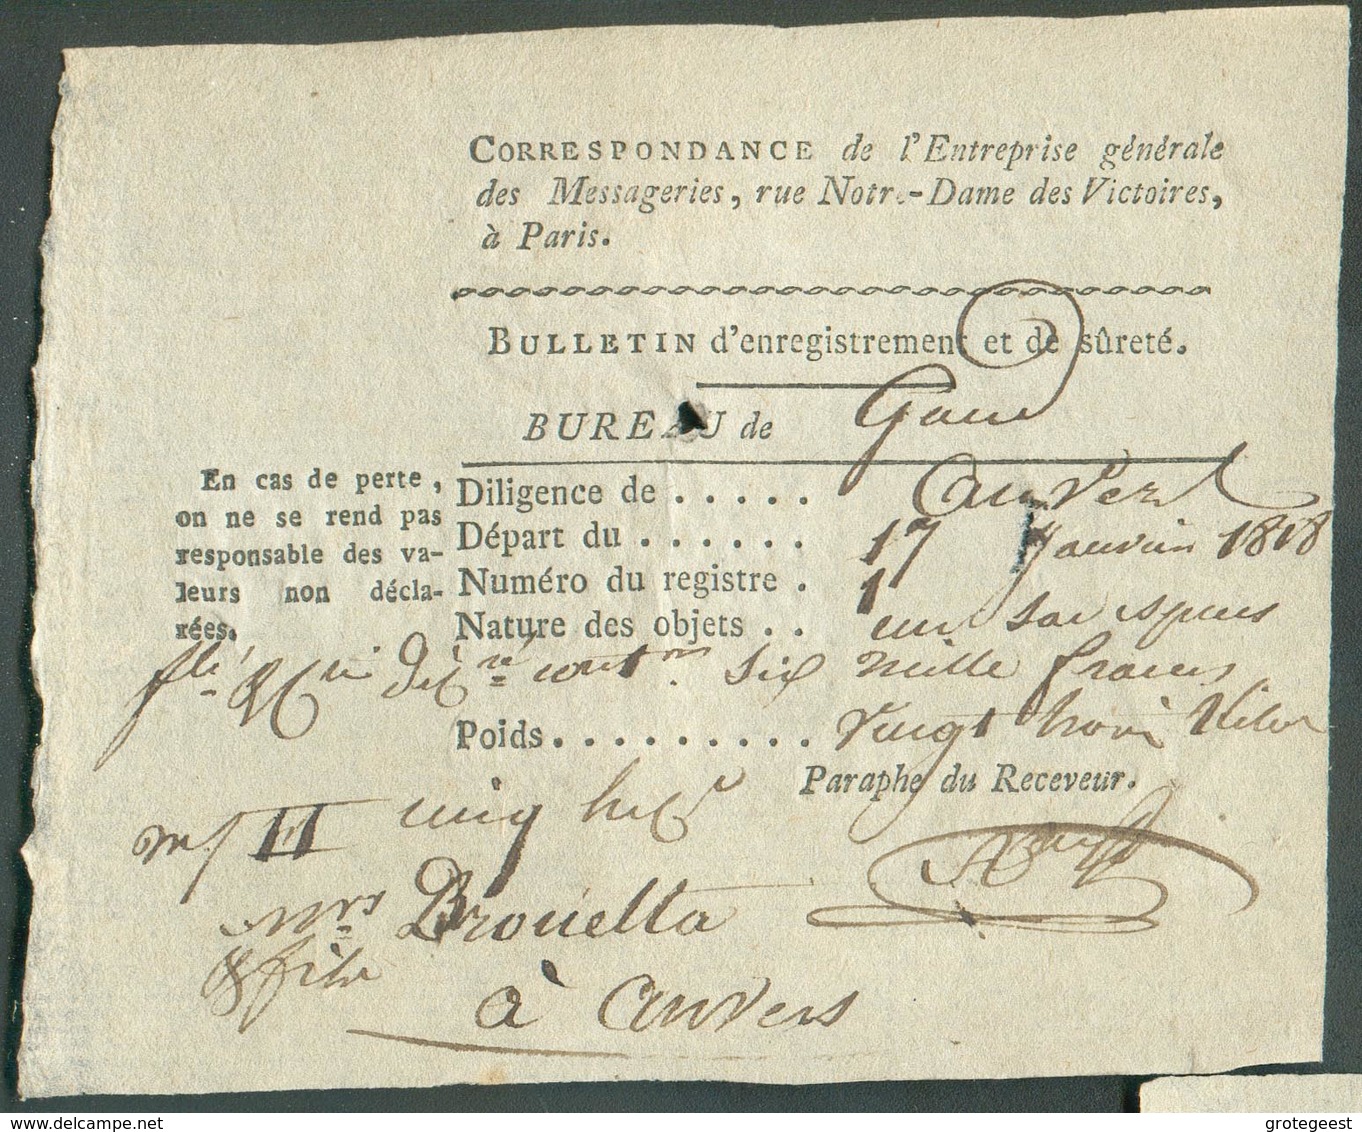 CORRESPONDANCE de l'Entreprise générale
des Messageries, rue Notre-Dame des Victoires,
à Paris.
BULLETIN d'enregistrement et de sûreté.
BUREAU de Gand
En cas de perte,
on ne se rend pas
responsable des va-
leurs non décla-
rées.
Diligence de ..... Anvers
Départ du ...... 17 Janvier 1818
Numéro du registre . 1
Nature des objets .. un sac espèces
six mille francs
Poids.......... vingt trois kilos
cinq
Paraphe du Receveur.
Mrs Brouetta
& fils
à Anvers
delcampe.net
grotegeest